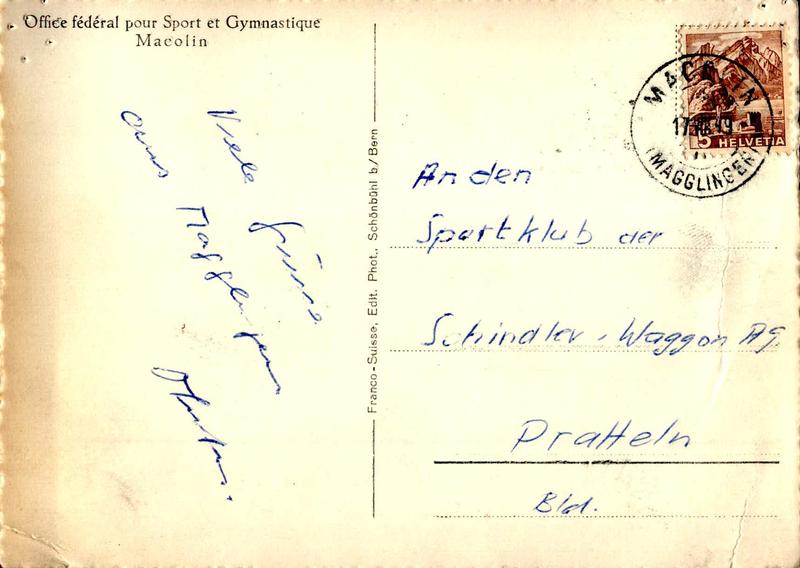 Office fédéral pour Sport et Gymnastique
Macolin
Viele Grüsse
aus Magglingen
Franco-Suisse, Edit. Phot., Schönbühl b/Bern
MACOLIN
(MAGGLINGEN)
5 HELVETIA
An den
Sportklub der
Schindler-Waggon AG.
Pratteln
Bld.